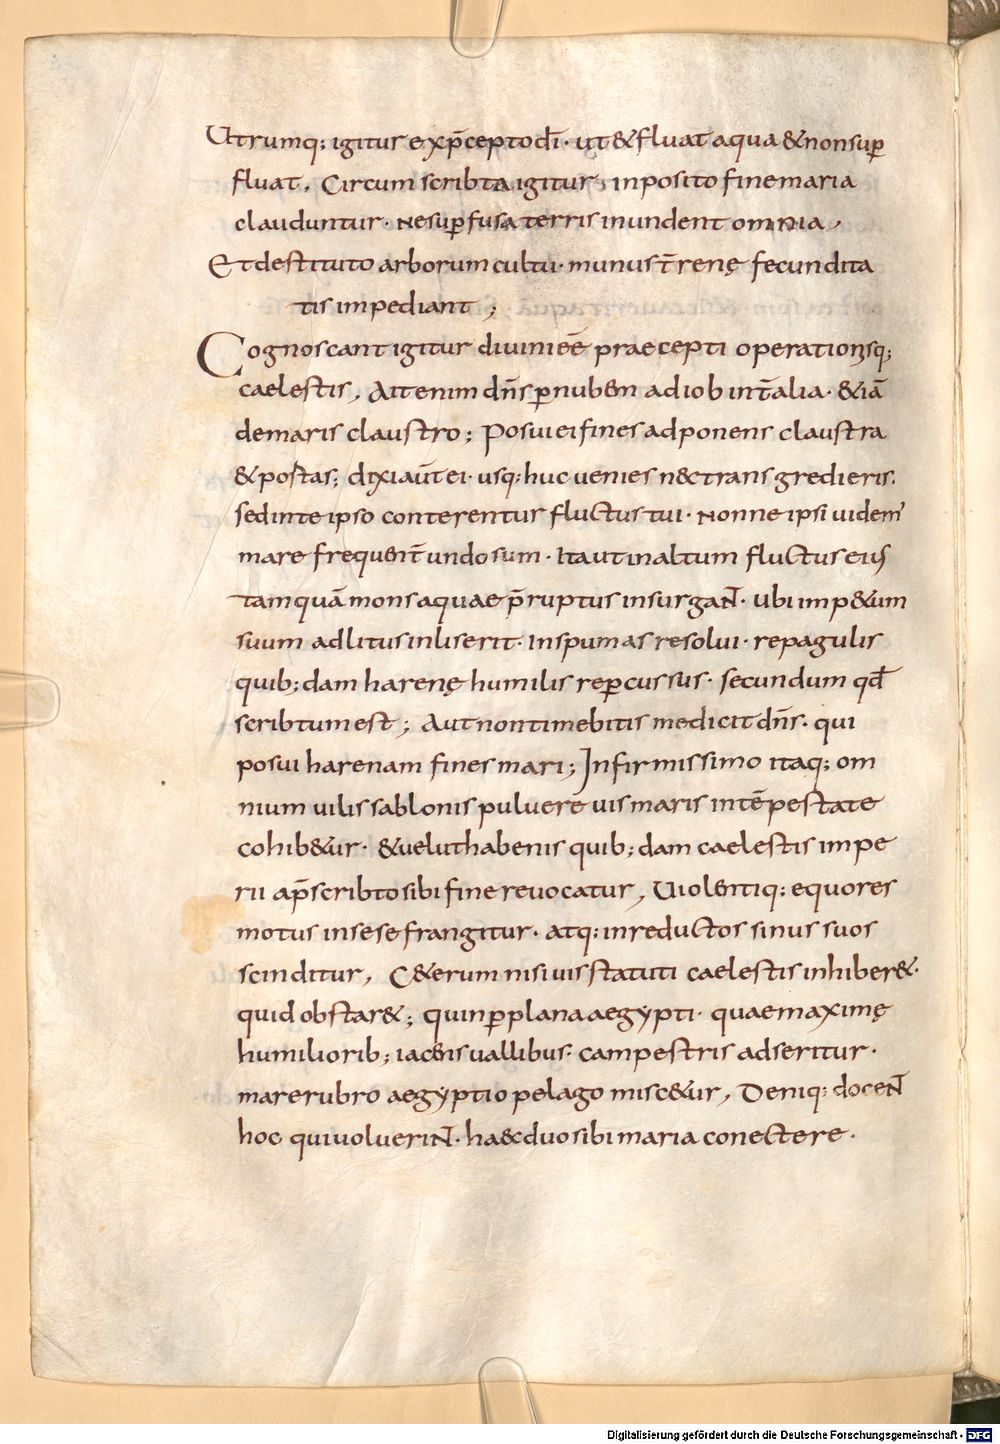 Utrumq; igitur exp̄cepto dī· ut & fluat aqua & non sup̲
fluat, Circumscribta igitur inposito fine maria
clauduntur· Ne sup̲fusa terris inundent omNia,
Et destituto arborum cultu· munus t̄renę fecundita
tis impediant;
Cognoscant igitur divini eē praecepti operationisq;
caelestis, Ait enim dn̄s p̲ nubem ad iob int̄ alia· & iā
de maris claustro; Posui ei fines adponens claustra
& postas; dixi aūt ei· usq; huc venies nec transgredieris·
sed in te ipso conterentur fluctus tui· Nonne ipsi uidem'
mare frequent̄ undosum· Ita ut in altum fluctus eius
tamquā mons aquae p̄ruptus insurgaN̄· Ubi imp&um
suum ad litus inliserit· In spumas resolui· repagulis
quib;dam harenę humilis rep̲cussus· secundum qđ
scribtum est; Aut non timebitis me dicit dn̄s· qui
posui harenam fines mari; Infirmissimo itaq; om
nium uilis sablonis puluere uis maris intēpestate
cohib&ur· & uelut habenis quib;dam caelestis impe
rii a p̄scribto sibi fine reuocatur, Uiolentiq; equores
motus in sese frangitur· atq; in reductos sinus suos
scinditur, C&erum nisi uis statuti caelestis inhiber&·
quid obstar&; quin p̲ plana aegypti· quae maximę
humiliorib; iacens uallibus· campestris adseritur·
mare rubro aegyptio pelago misc&ur, Deniq; doceN̄
hoc qui uolueriN̄· haec duo sibi maria conectere·
Digitalisierung gefördert durch die Deutsche Forschungsgemeinschaft · DFG